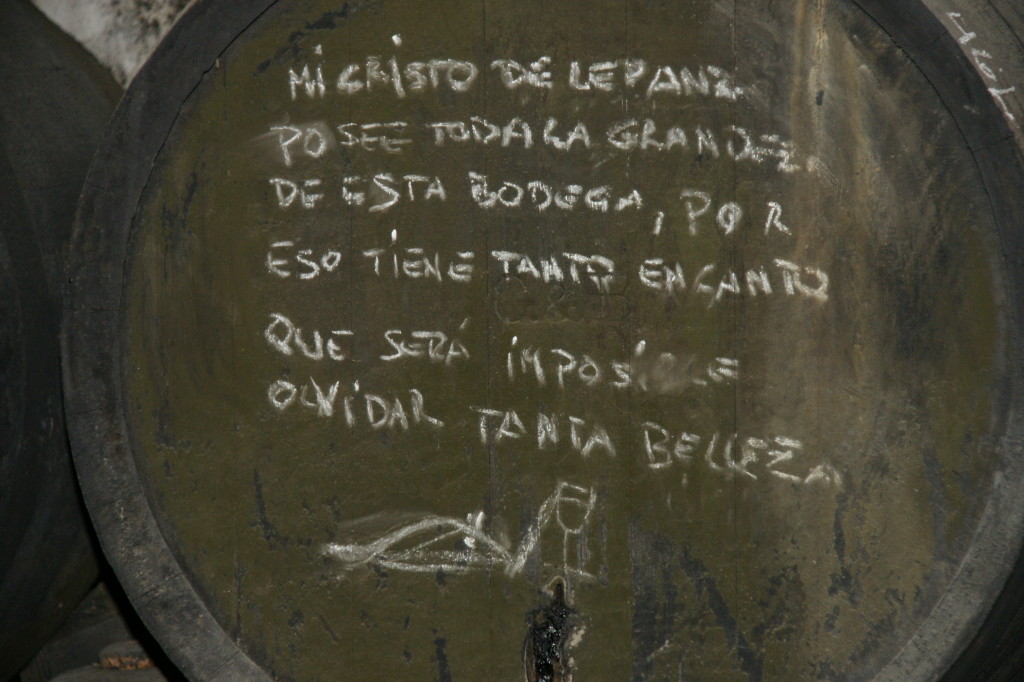 MI CRISTO DE
POSEE TODA LA GRANDEZA
DE ESTA BODEGA, POR
ESO TIENE TANTO ENCANTO
QUE SERÁ IMPOSIBLE
OLVIDAR TANTA BELLEZA